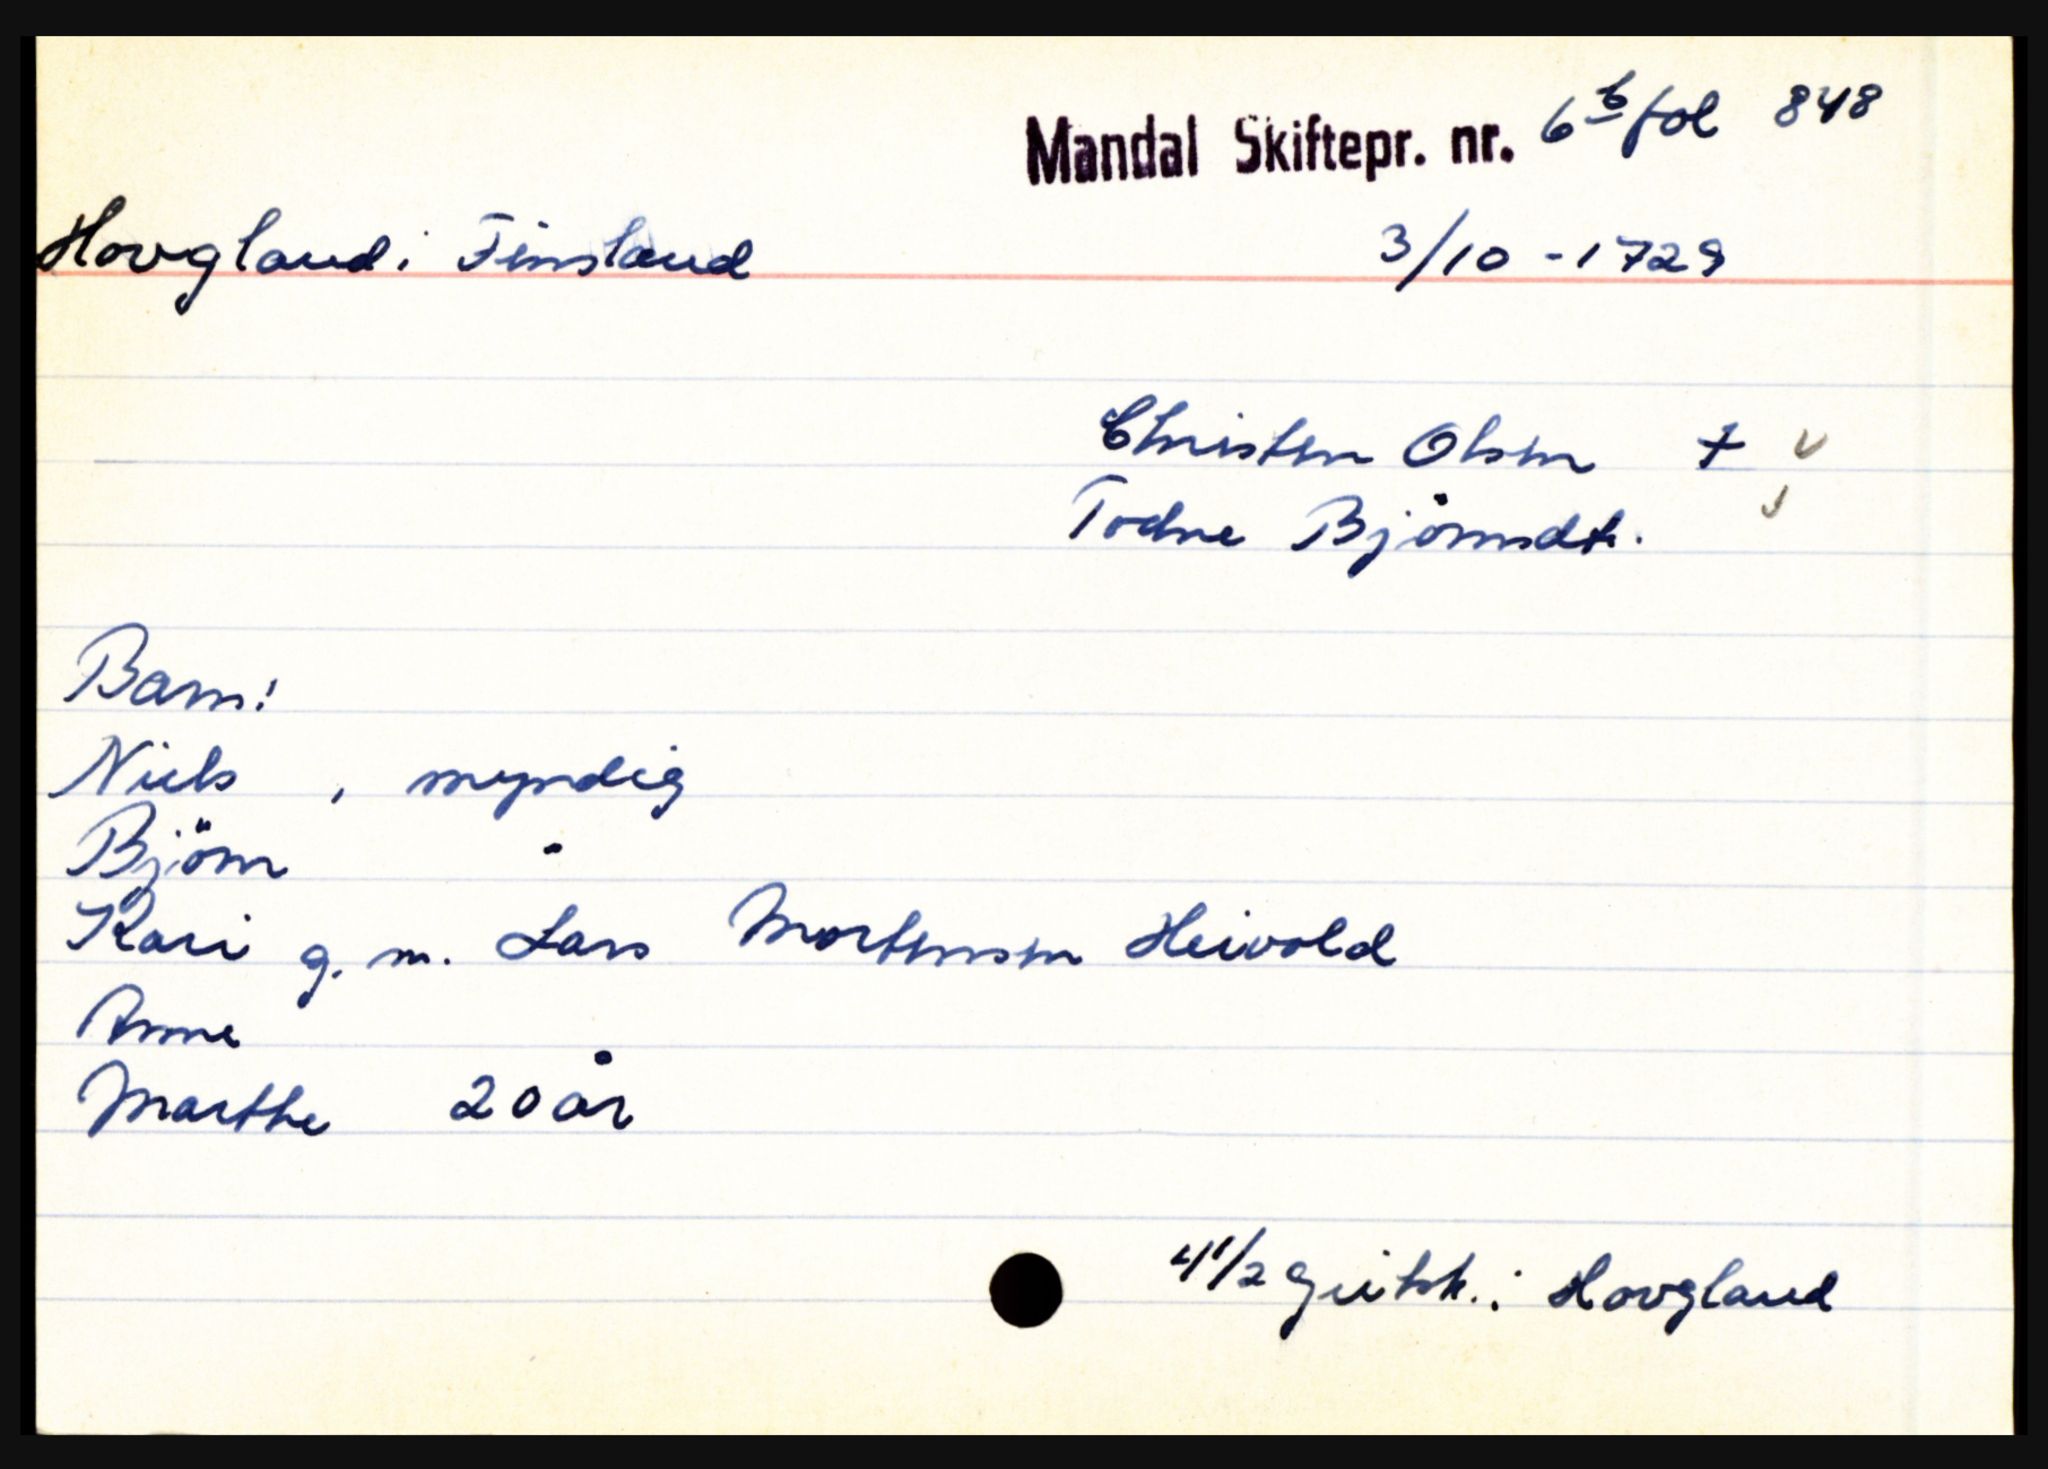 Mandal Skiftepr. nr. 6b fol 848
Hovgland i Finsland 3/10 - 1729
Christen Olsen †
Todne Björnsdtr.
Barn:
Niels , myndig
Björn "
Kari g. m. Lars Mortensen Heivold
Anne
Marthe 20 år
4 1/2 geitsk. i Hovgland